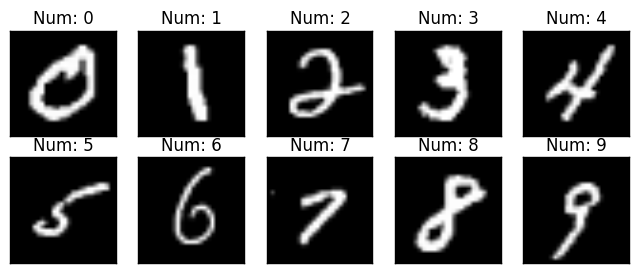 Num: 0 Num: 1 Num: 2 Num: 3 Num: 4
0 1 2 3 4
Num: 5 Num: 6 Num: 7 Num: 8 Num: 9
5 6 7 8 9